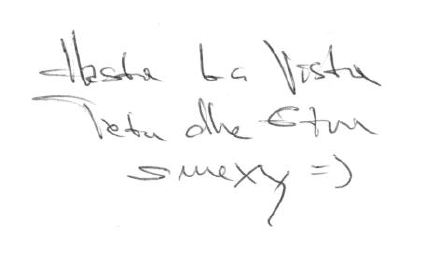 Hasta La Vista
Teta dhe Etun
smexy =)